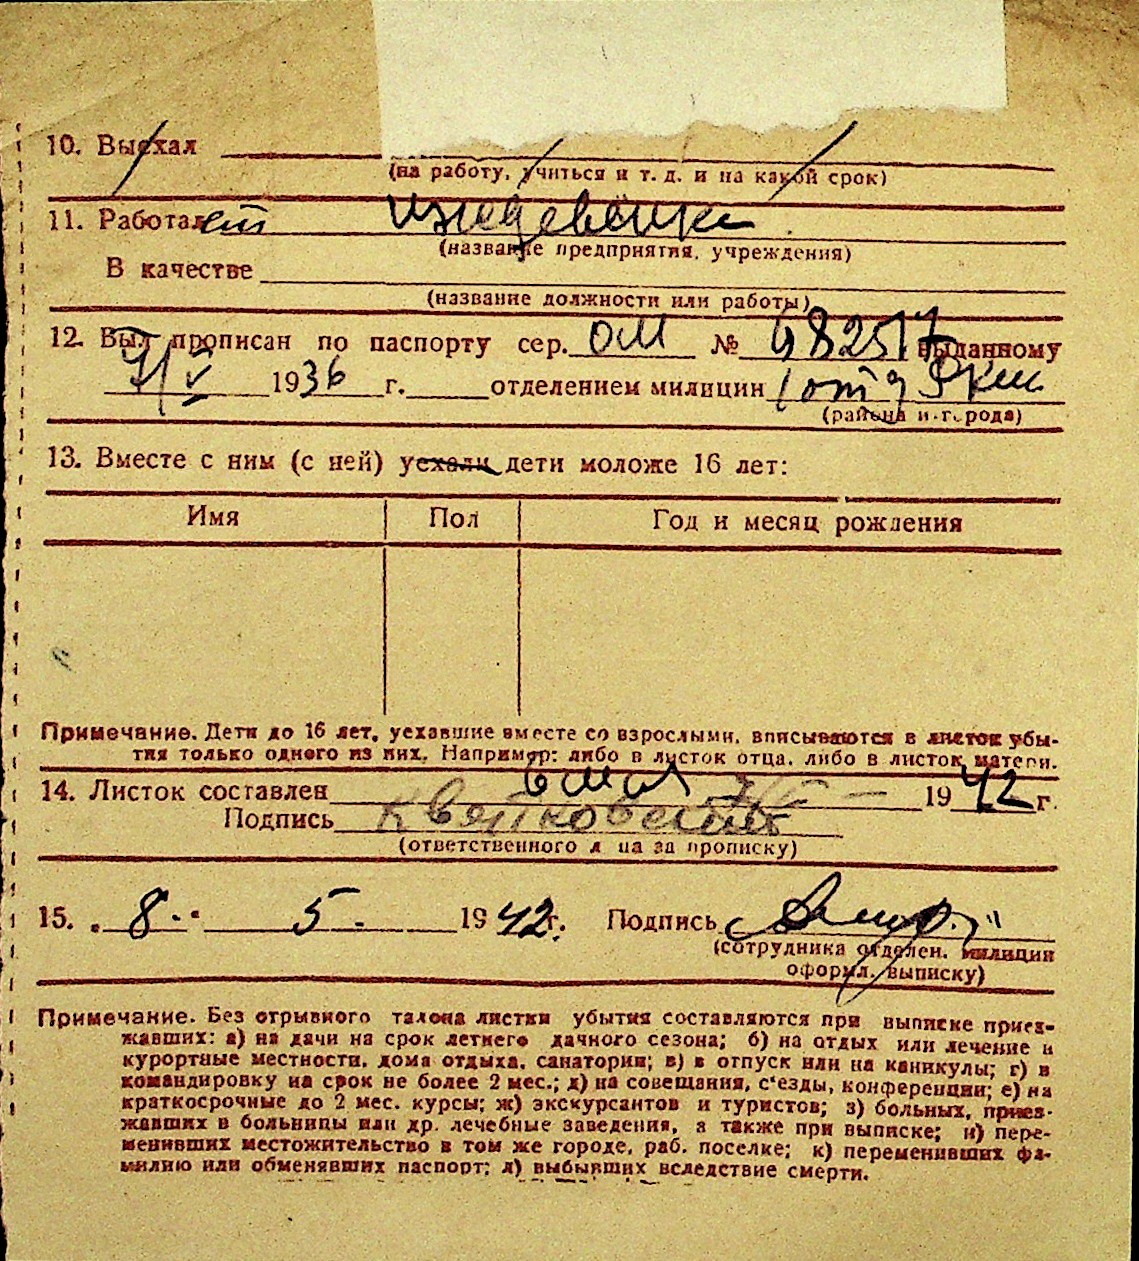 10. Выехал
(на работу, учиться и т. д. и на какой срок)
11. Работает иждевенка
(название предприятия, учреждения)
В качестве
(название должности или работы)
12. Был прописан по паспорту сер. ОМ № 982517 выданному
1936 г. отделением милиции 1 отд
(района и города)
13. Вместе с ним (с ней) уехали дети моложе 16 лет:
Имя Пол Год и месяц рождения
Примечание. Дети до 16 лет, уехавшие вместе со взрослыми, вписываются в листок убы-
тия только одного из них. Например: либо в листок отца, либо в листок матери.
14. Листок составлен 1942 г.
Подпись
(ответственного лица за прописку)
15. „8." 5. 1942 г. Подпись
(сотрудника отделен. милиции
оформ. выписку)
Примечание. Без отрывного талона листки убытия составляются при выписке приез-
жавших: а) на дачи на срок летнего дачного сезона; б) на отдых или лечение и
курортные местности, дома отдыха, санатории; в) в отпуск или на каникулы; г) в
командировку на срок не более 2 мес.; д) на совещания, с'езды, конференции; е) на
краткосрочные до 2 мес. курсы; ж) экскурсантов и туристов; з) больных, приез-
жавших в больницы или др. лечебные заведения, а также при выписке; и) пере-
менивших местожительство в том же городе, раб. поселке; к) переменивших фа-
милию или обменявших паспорт; л) выбывших вследствие смерти.